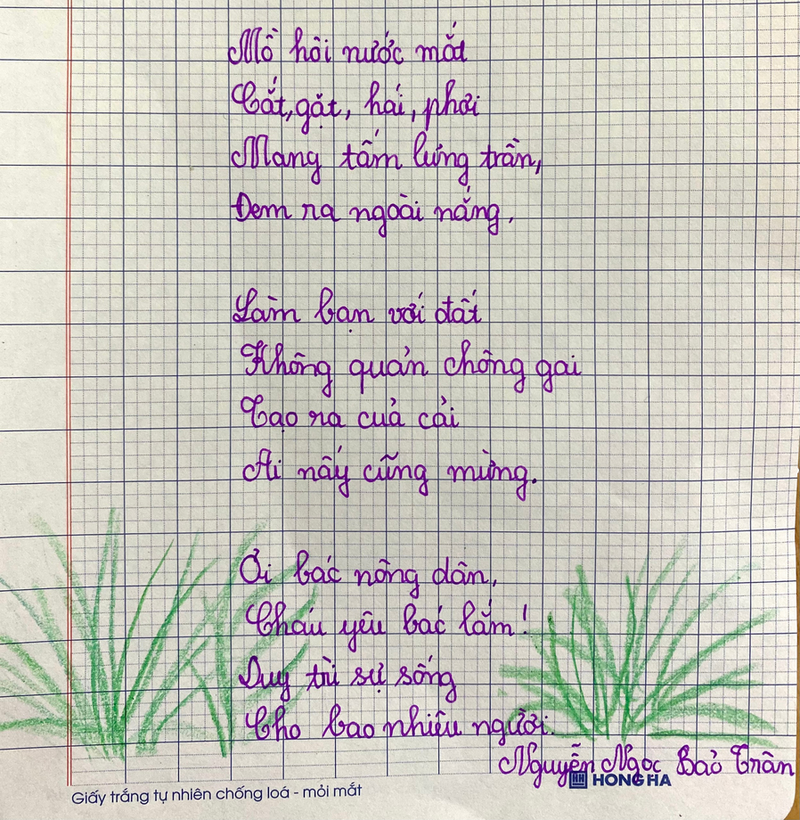 Mồ hôi nước mắt
Cắt, gặt, hái, phơi
Mang tấm lưng trần,
Đem ra ngoài nắng.
Làm bạn với đất
Không quản chông gai
Tạo ra của cải
Ai nấy cũng mừng.
Ơi bác nông dân,
Cháu yêu bác lắm!
Duy trì sự sống
Cho bao nhiêu người.
Nguyễn Ngọc Bảo Trân
HONG HA
Giấy trắng tự nhiên chống loá - mỏi mắt